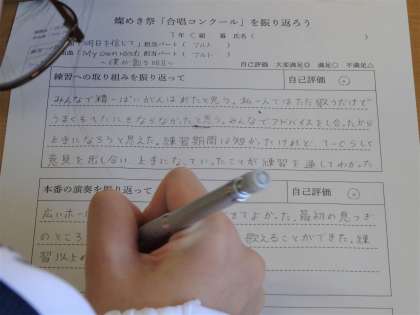 燦めき祭「合唱コンクール」を振り返ろう
1年( )組 氏名( )
明日を信じて」担当パート( アルト )
「My Own Road」担当パート( アルト )
〜僕が創る明日〜
自己評価 大変満足◎ 満足○ 不満足△
練習への取り組みを振り返って 自己評価 ○
みんなで精一ぱいがんばれたと思う。私一人ではただ歌うだけで
思う。みんなでアドバイスをし合ったから
上手になろうと思えた。練習期間は短かったけれど、
意見を出し合い、上手になっていったことが練習を通してわかった
本番の演奏を振り返って 自己評価 ○
広いホー てよかった。最初の見つき
のところ 歌えることができた。練
習以上